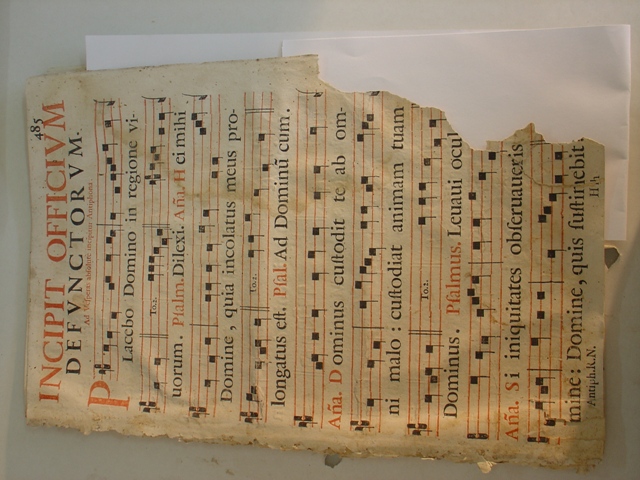 485
INCIPIT OFFICIVM
DEFVNCTORVM.
Ad Vesperas absolutè incipitur Antiphona
PLacebo Domino in regione vi-
To.2.
uorum. Psalm. Dilexi. Aña. Hei mihi
Domine, quia incolatus meus pro-
To.2.
longatus est. Psal. Ad Dominũ cum.
Aña. Dominus custodit te ab om-
ni malo: custodiat animam tuam
To.2.
Dominus. Psalmus. Leuaui ocul
Aña. Si iniquitates obseruaueris
mine: Domine, quis sustinebit
Antiph.R.N. Hh